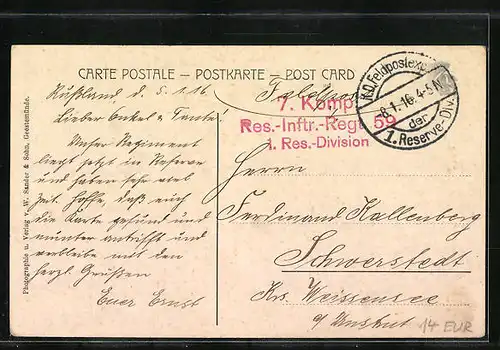 CARTE POSTALE – POSTKARTE – POST CARD
Rußland d. 5.1.16
Lieber Onkel u. Tante!
Unser Regiment
liegt jetzt in Reserve
und haben sehr viel
Zeit. Hoffe, daß euch
die Karte gesund und
munter antrifft und
verbleibe mit den
herzl. Grüßen
Euer Ernst
Photographie u. Verlag v. W. Sander & Sohn, Geestemünde.
Feldpost
7. Komp.
Res.-Inftr.-Regt. 59
1. Res.-Division
K.D. Feldpostexp.
8.1.16. 4-5 N
der
1. Reserve-Div.
Herrn
Ferdinand Kallenberg
Schwerstedt
Krs. Weissensee
a/ Unstrut
14 EUR